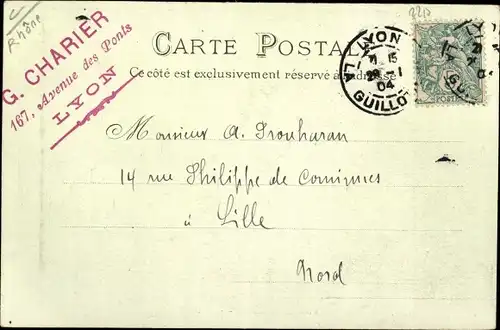 Rhône
G. CHARIER
167, Avenue des Ponts
LYON
CARTE POSTALE
Ce côté est exclusivement réservé à l'adresse
LYON
15
04
GUILLOT
Monsieur A.
14 rue Philippe de Comignes
à Lille
Nord